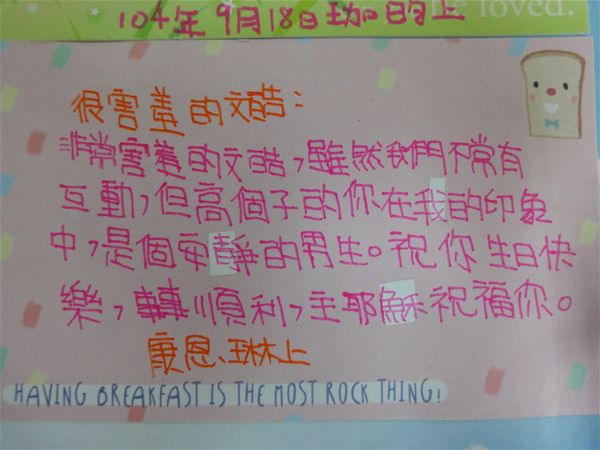 e loved.
104年9月18日珈昀上
很害羞的文皓：
非常害羞的文皓，雖然我們不常有
互動，但高個子的你在我的印象
中，是個安靜的男生。祝你生日快
樂，事事順利，主耶穌祝福你。
康恩、琳上
HAVING BREAKFAST IS THE MOST ROCK THING!